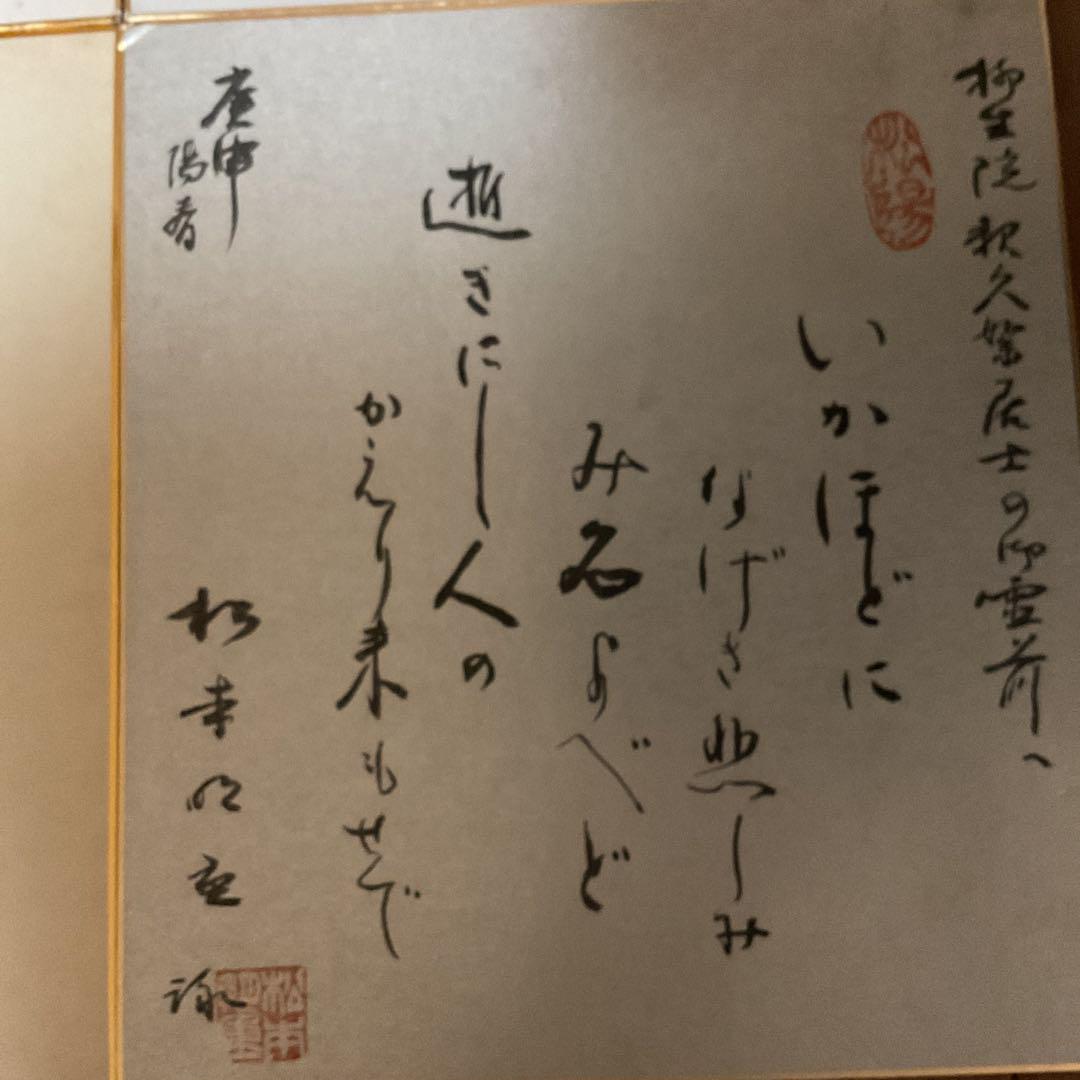 柳生院釈久栄居士の御霊前へ
松陽
いかほどに
なげき悲しみ
み名よべど
逝きにし人の
かえり来もせで
庚申
陽春
松本明重
詠
松本明重